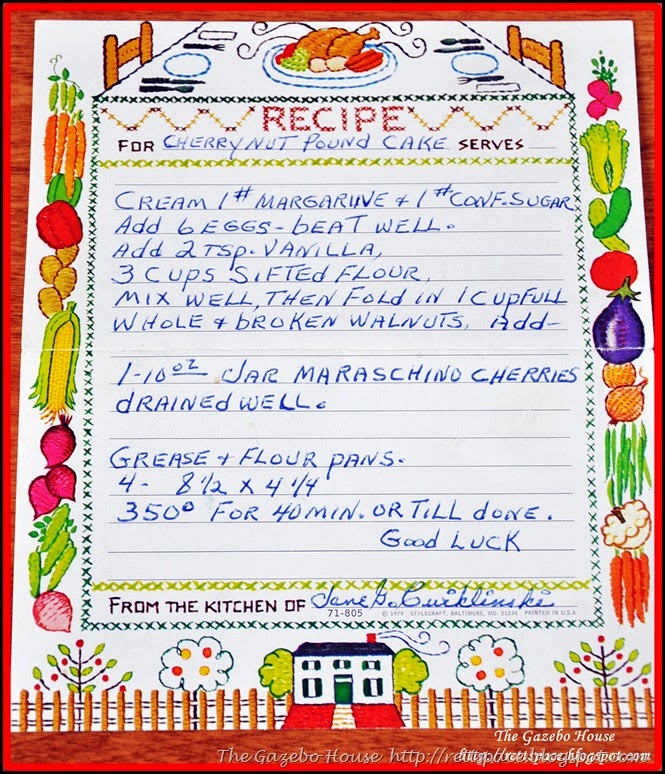 RECIPE
FOR CHERRY NUT POUND CAKE SERVES
CREAM 1# MARGARINE & 1# CONF. SUGAR
Add 6 EGGS - bEAT WELL.
Add 2 TSP. VANILLA,
3 CUPS SIFTEd FLOUR,
MIX WELL, THEN FOLd IN 1 CUPFULL
WHOLE & bROKEN WALNUTS, Add-
1-10 OZ JAR MARASCHINO CHERRIES
dRAINEd WELL.
GREASE & FLOUR PANS.
4- 8 1/2 X 4 1/4
350° FOR 40 MIN. OR TILL dONE.
Good LUCK
FROM THE KITCHEN OF Jane G. Cwiklinski
71-805 © 1979 STYLECRAFT, BALTIMORE, MD. 21230 PRINTED IN U.S.A
The Gazebo House
http://rettspace.blogspot.com
The Gazebo House http://rettspace.blogspot.com